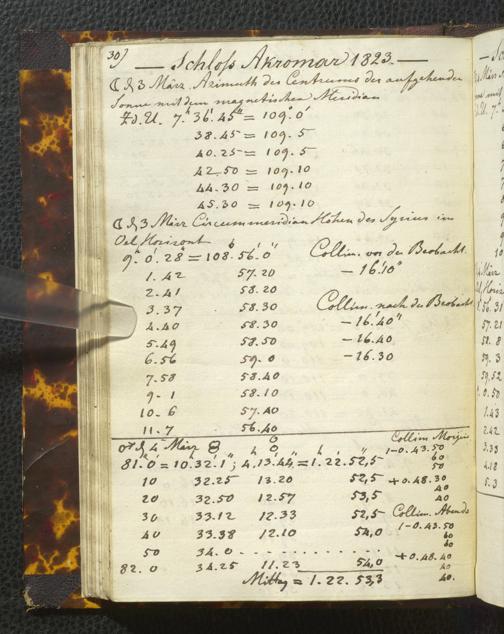 30)
— Schloss Akromar 1823. —
☾ d. 3 März Azimuth des Centrums der aufgehenden
Sonne mit dem magnetischen Meridian
Z. d. U. 7.h 36.' 45." = 109.° 0'
38.45 = 109. 5
40.25 = 109. 5
42.50 = 109.10
44.30 = 109.10
45.30 = 109.10
☾ d. 3 März Circummeridian Höhen des Syrius im
Oel Horizont
9.h 0.' 28" = 108.° 56.' 0" Collim. vor der Beobacht.
1.42 57.20 — 16.'10"
2.41 58.20
3.37 58.30 Collim. nach der Beobacht.
4.40 58.30 — 16.'40"
5.49 58.50 — 16.40
6.56 59.0 — 16.30
7.58 58.40
9.1 58.10
10.6 57.40
11.7 56.40
♂ d. 4 März Collim Morgens
1-0.43.50
81.° 0' = 10.h 32.' 1" ; 4.h 13.' 44" = 1.h 22.' 52,"5 60
50
10 32.25 13.20 52,5 +0.48.30
40
20 32.50 12.57 53,5 40
30 33.12 12.33 52,5 Collim. Abends
1-0.43.50
40 33.38 12.10 54,0 60
60
50 34.0 - - - - - - - - - - +0.48.40
82.0 34.25 11.23 54,0 40
Mittag = 1.22.53,3 40.